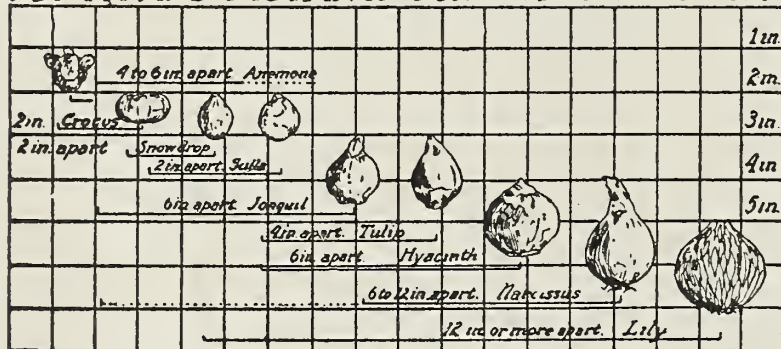 1in.
2in.
4 to 6 in. apart Anemone
2in. Crocus
3in.
2 in. apart Snowdrop
4in.
2 in. apart. Scilla
6in. apart Jonquil
5in.
4in. apart. Tulip
6in. apart. Hyacinth
6 to 12 in. apart. Narcissus
12 in or more apart. Lily